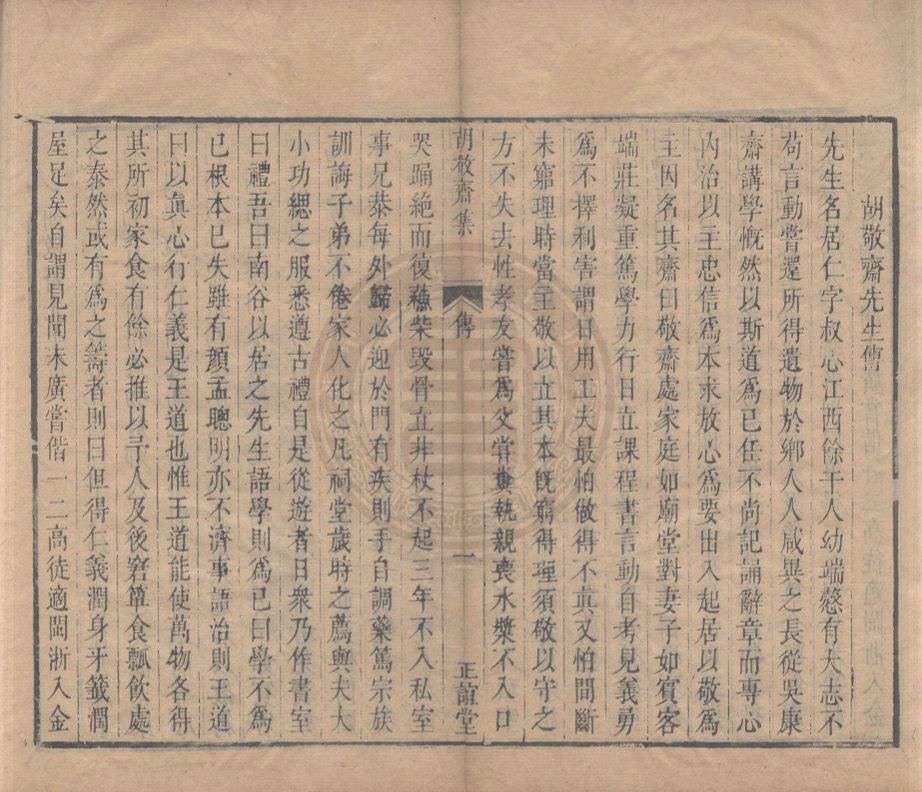 胡敬齋先生傳
先生名居仁字叔心江西餘干人幼端慤有大志不
苟言動嘗還所得遺物於鄉人人咸異之長從吳康
齋講學慨然以斯道為已任不尚記誦辭章而專心
內治以主忠信為本求放心為要出入起居以敬為
主因名其齋曰敬齋處家庭如廟堂對妻子如賓客
端莊凝重篤學力行日立課程書言動自考見義勇
為不擇利害謂日用工夫最怕做得不眞又怕間斷
未窮理時當主敬以立其本旣窮得理須敬以守之
方不失去性孝友嘗為父嘗糞執親喪水漿不入口
胡敬齋集
傳
一
正誼堂
哭踊絶而復蘓柴毀骨立非杖不起三年不入私室
事兄恭每外歸必迎於門有疾則手自調藥篤宗族
訓誨子弟不倦家人化之凡祠堂歲時之薦與夫大
小功緦之服悉遵古禮自是從遊者日衆乃作書室
曰禮吾曰南谷以居之先生語學則為已曰學不為
已根本已失雖有顔孟聰明亦不濟事語治則王道
曰以眞心行仁義是王道也惟王道能使萬物各得
其所初家食有餘必推以予人及後窘簞食瓢飲處
之泰然或有為之籌者則曰但得仁義潤身牙籤潤
屋足矣自謂見聞未廣嘗偕一二高徒適閩浙入金